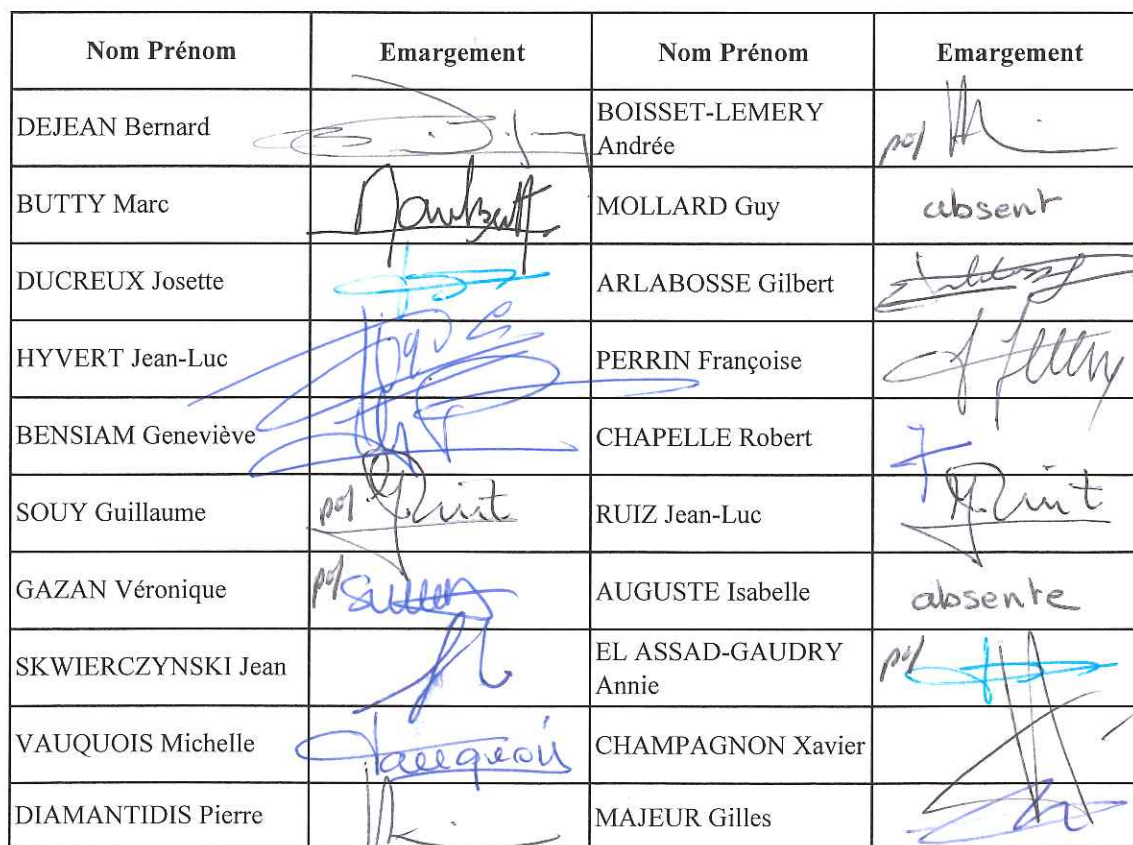 Nom Prénom Emargement Nom Prénom Emargement
DEJEAN Bernard BOISSET-LEMERY
Andrée
BUTTY Marc MOLLARD Guy absent
DUCREUX Josette ARLABOSSE Gilbert
HYVERT Jean-Luc PERRIN Françoise
BENSIAM Geneviève CHAPELLE Robert
SOUY Guillaume RUIZ Jean-Luc
GAZAN Véronique AUGUSTE Isabelle absente
SKWIERCZYNSKI Jean EL ASSAD-GAUDRY
Annie
VAUQUOIS Michelle CHAMPAGNON Xavier
DIAMANTIDIS Pierre MAJEUR Gilles